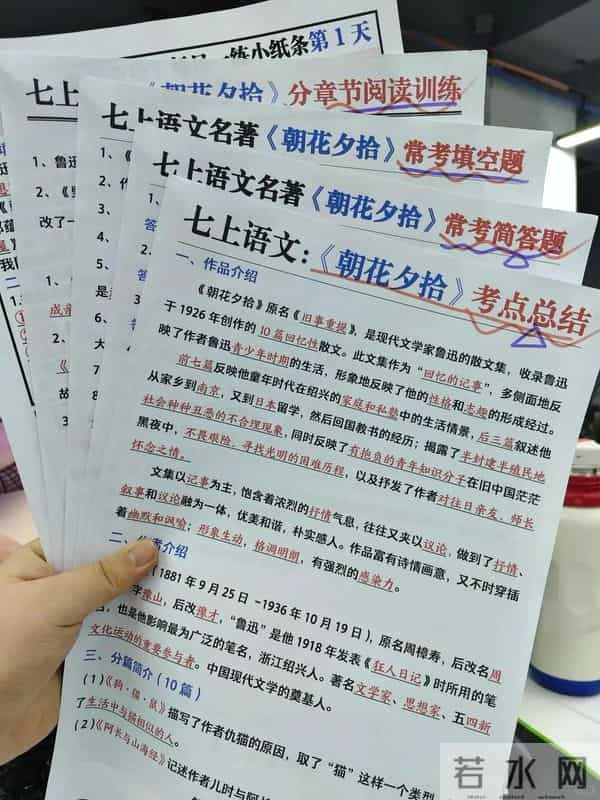 练小纸条第1天
七上
《朝花夕拾》分章节阅读训练
七上语文名著《朝花夕拾》常考填空题
七上语文名著《朝花夕拾》常考简答题
七上语文:《朝花夕拾》考点总结
一、作品介绍
《朝花夕拾》原名《旧事重提》,是现代文学家鲁迅的散文集,收录鲁迅
于1926年创作的10篇回忆性散文。此文集作为“回忆的记事”,多侧面地反
映了作者鲁迅青少年时期的生活,形象地反映了他的性格和志趣的形成经过。
前七篇反映他童年时代在绍兴的家庭和私塾中的生活情景,后三篇叙述他
从家乡到南京,又到日本留学,然后回国教书的经历;揭露了半封建半殖民地
社会种种丑恶的不合理现象,同时反映了有抱负的青年知识分子在旧中国茫茫
黑夜中,不畏艰险,寻找光明的困难历程,以及抒发了作者对往日亲友、师长
怀念之情。
文集以记事为主,饱含着浓烈的抒情气息,往往又夹以议论,做到了抒情、
叙事和议论融为一体,优美和谐,朴实感人。作品富有诗情画意,又不时穿插
着幽默和讽喻;形象生动,格调明朗,有强烈的感染力。
二、作者介绍
(1881年9月25日-1936年10月19日),原名周樟寿,后改名周
字豫山,后改豫才,“鲁迅”是他1918年发表《狂人日记》时所用的笔
也是他影响最为广泛的笔名,浙江绍兴人。著名文学家、思想家、五四新
文化运动的重要参与者。中国现代文学的奠基人。
三、分篇简介(10篇)
(1)《狗·猫·鼠》描写了作者仇猫的原因,取了“猫”这样一个类型
了生活中与猫相似的人。
(2)《阿长与山海经》记述作者儿时与阿
若水网